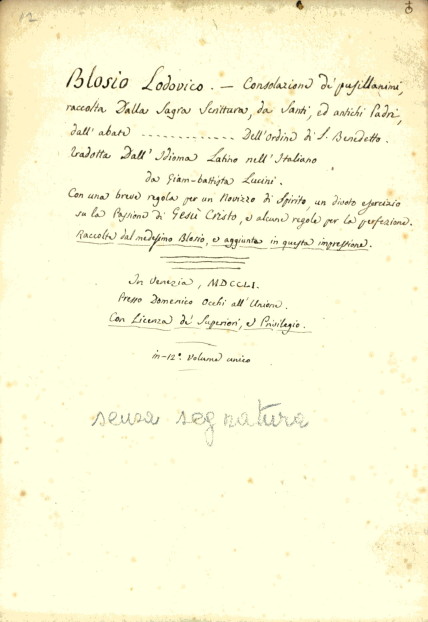 12
Blosio Lodovico. — Consolazione de' pusillanimi,
raccolta Dalla Sagra Scrittura, da Santi, ed antichi Padri,
dall' abate .............. Dell'Ordine di S. Benedetto.
tradotta Dall' Idioma Latino nell' Italiano
da Giam-battista Lucini.
Con una breve regola per un Novizzo di Spirito, un divoto esercizio
su la Passione di Gesù Cristo, e alcune regole per la perfezione.
Raccolte dal medesimo Blosio, e aggiunta in questa impressione.
In Venezia, MDCCLI.
Presso Domenico Occhi all' Unione.
Con Licenza de' Superiori, e Privilegio.
in-12.° volume unico
senza segnatura